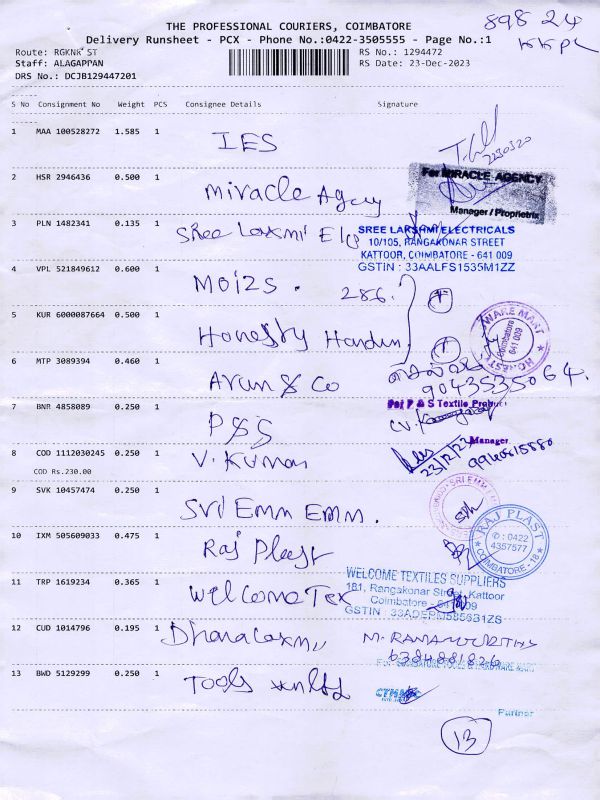 THE PROFESSIONAL COURIERS, COIMBATORE
898 24
Delivery Runsheet - PCX - Phone No.:0422-3505555 - Page No.:1
Route: RGKNR ST
RS No.: 1294472
Staff: ALAGAPPAN
RS Date: 23-Dec-2023
DRS No.: DCJB129447201
S No Consignment No Weight PCS Consignee Details Signature
1 MAA 100528272 1.585 1 IES
2 HSR 2946436 0.500 1 Miracle Agency
For MIRACLE AGENCY
Manager / Proprietrix
3 PLN 1482341 0.135 1 Sree Laxmi
SREE LAKSHMI ELECTRICALS
10/105, RANGAKONAR STREET
KATTOOR, COIMBATORE - 641 009
GSTIN : 33AALFS1535M1ZZ
4 VPL 521849612 0.600 1 Moizs. 286.
5 KUR 6000087664 0.500 1 Honesty
WARE MART
Coimbatore
641 009
HONESTY
6 MTP 3089394 0.460 1 Arun & Co
9043535064.
7 BNR 4858089 0.250 1 PSS
For P & S Textile Products
Manager
8 COD 1112030245 0.250 1 V. Kumar
COD Rs.230.00
23/12/23
9940615880
9 SVK 10457474 0.250 1 Sri Emm Emm.
10 IXM 505609033 0.475 1 Raj Plast
RAJ PLAST
✆ : 0422
4357577
COIMBATORE - 18
11 TRP 1619234 0.365 1 Welcome Tex
WELCOME TEXTILES SUPPLIERS
181, Rangakonar Street, Kattoor
Coimbatore - 641 009
GSTIN : 33ADEPM5856B1ZS
12 CUD 1014796 0.195 1 Dhanalaxmi M. RAMAMOURTHY
6384881826
13 BWD 5129299 0.250 1 Tools
Partner
13